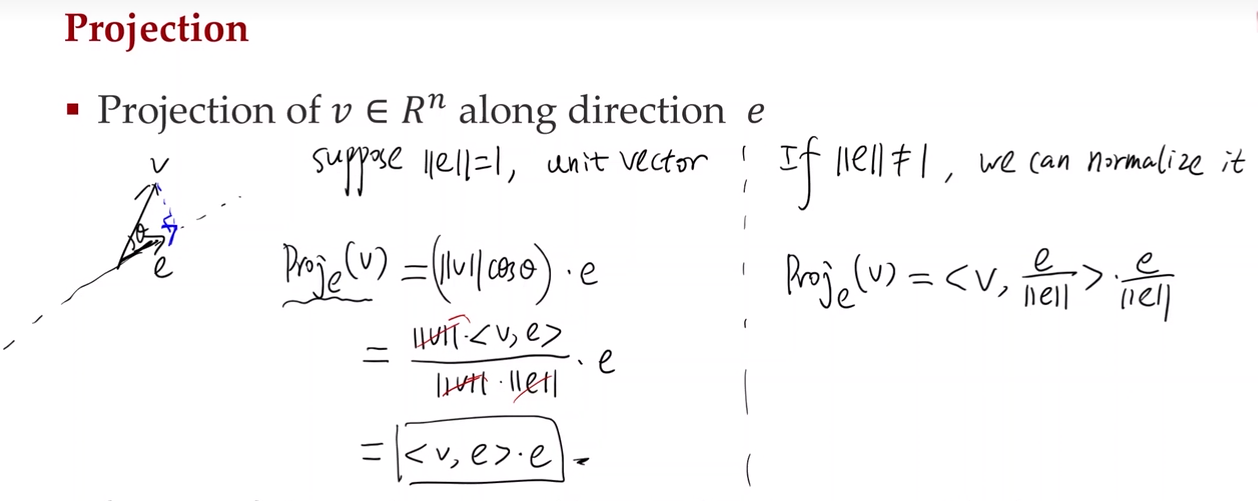 Projection
▪ Projection of v ∈ Rⁿ along direction e
v
θ
e
suppose ||e||=1, unit vector
Proj_e(v) = (||v|| cosθ) · e
= ||v||·<v, e> / ||v|| · ||e|| · e
= <v, e>·e
If ||e|| ≠ 1, we can normalize it
Proj_e(v) = <v, e/||e||> · e/||e||